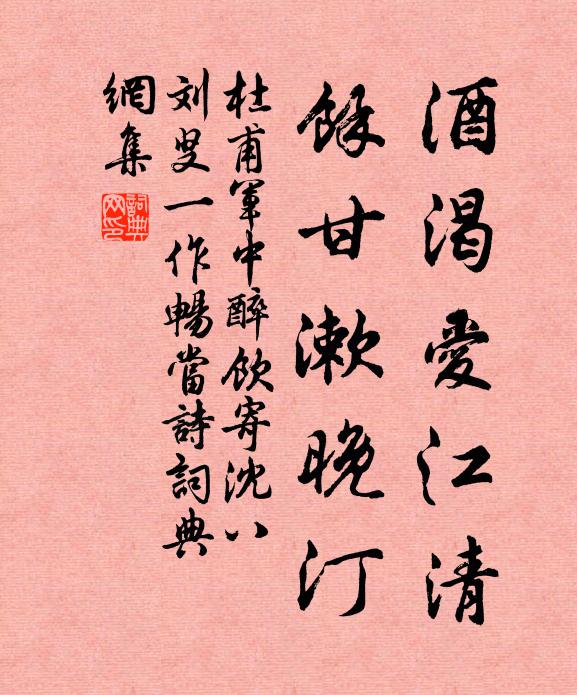 酒渴愛江清
餘甘漱晚汀
杜甫軍中醉飲寄沈八
刘叟一作暢當詩詞典
網集
詞典網印